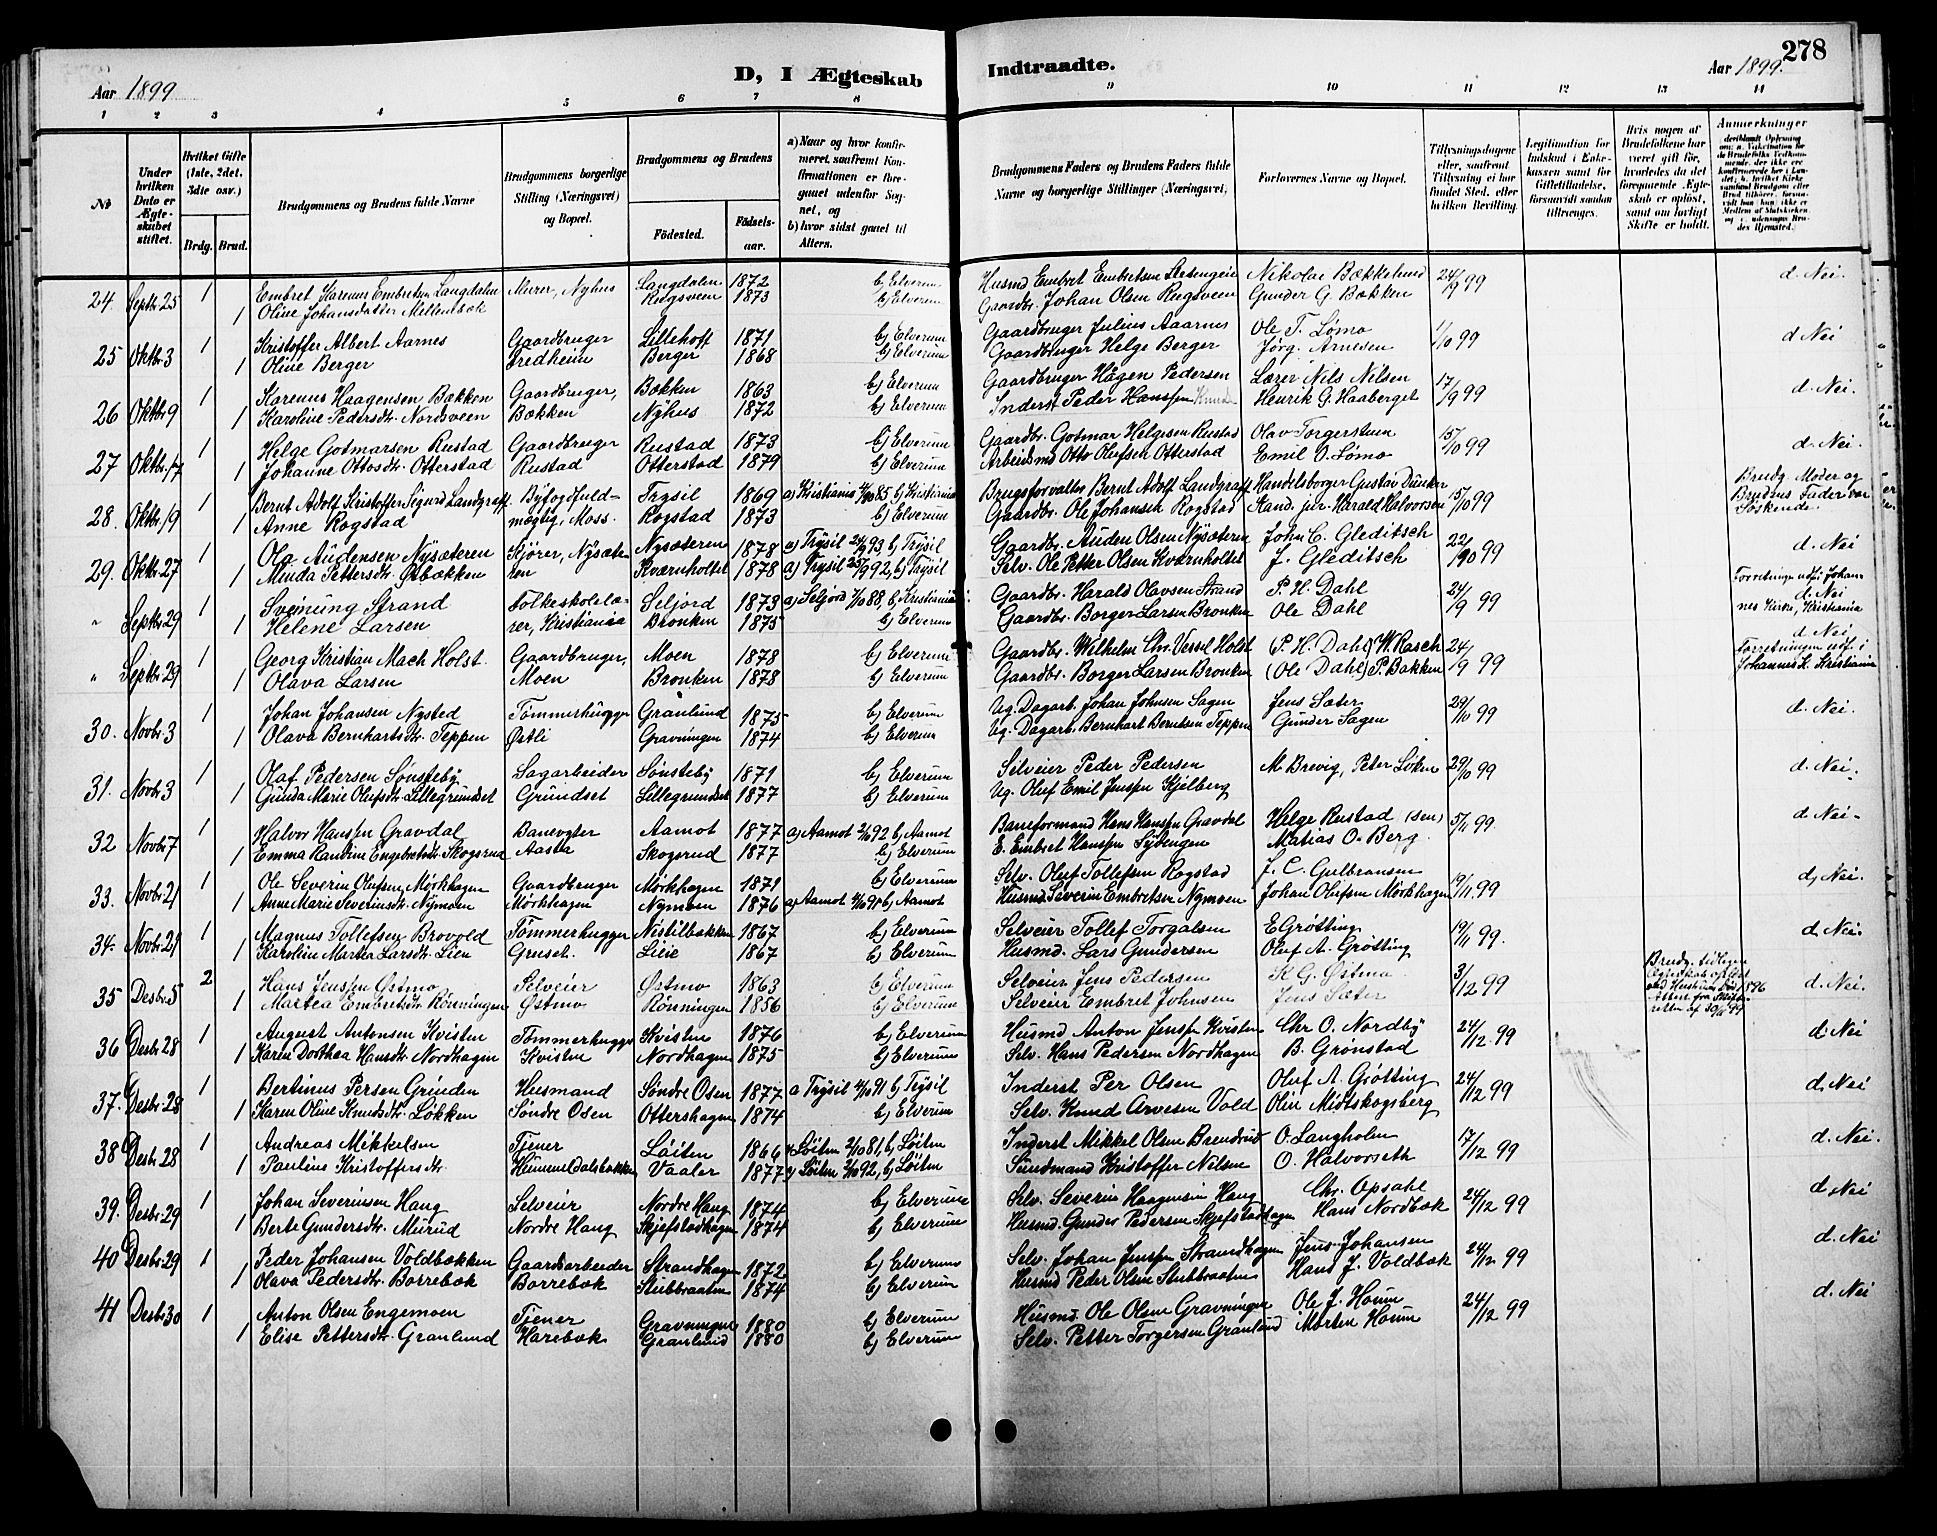 278
Aar 1899
D, I Ægteskab Indtraadte.
Aar 1899.
1 2 3 4 5 6 7 8 9 10 11 12 13 14
No
Under hvilken Dato er Ægteskabet stiftet.
Hvilket Gifte (1ste, 2det, 3die osv.)
Brdg. Brud.
Brudgommens og Brudens fulde Navne
Brudgommens borgerlige Stilling (Næringsvei) og Bopæl.
Brudgommens og Brudens
Födested. Födselsaar.
a) Naar og hvor konfirmeret, saafremt Konfirmationen er foregaaet udenför Sognet, og
b) hvor sidst gaaet til Alters.
Brudgommens Faders og Brudens Faders fulde Navne og borgerlige Stillinger (Næringsvei)
Forlovernes Navne og Bopæl.
Tillysningsdagene eller, saafremt Tillysning ei har fundet Sted, efter hvilken Bevilling.
Legitimation for Indskud i Enkekassen samt for Giftetilladelse, forsaavidt saadan tiltrænges.
Hvis nogen af Brudefolkene har været gift för, hvorledes da det foregaaende Ægteskab er oplöst, samt om lovligt Skifte er holdt.
Anmærkninger
24. Septbr 25 1 Embret Karenus Embretsen Langdalen Murer, Nyhus Langdalen 1872 b) Elverum Husmd Embret Embretsen Nikolai Bækkelund 24/9 99 d. Nei.
1 Olive Johansdatter Mellembæk Rugsveen 1873 b) Elverum Gaardbr. Johan Olsen Rugsveen Gunder G. Bækken
25 Oktbr 3 1 Kristoffer Albert Aarnes Gaardbruger Lillehoff 1871 b) Elverum Gaardbruger Julius Aarnes Ole T. Lømo 1/10 99 d. Nei
1 Oline Berger Fredheim Berger 1868 b) Elverum Gaardbruger Helge Berger Jörg. Arnesen
26 Oktbr 9 1 Karenus Haagensen Bækken Gaardbruger, Bækken 1863 b) Elverum Gaardbruger Hågen Pedersen Lærer Nils Nilsen 17/9 99 d. Nei.
1 Karoline Pedersdtr. Nordsveen Bækken Nyhus 1872 b) Elverum Inderst Peder Hanssen Henrik G. Haaberget
27 Oktbr. 17 1 Helge Gotmarsen Rustad Gaardbruger Rustad 1873 b) Elverum Gaardbr. Gotmar Helgesen Rustad Olav Torgerstuen 15/10 99 d. Nei.
1 Johanne Ottosdtr. Otterstad Rustad Otterstad 1879 b) Elverum Arbeidsmd Otto Olufsen Otterstad Emil O. Lömo
28. Oktbr. 19 1 Bernt Adolf Kristoffer Sigurd Landgraff Byfogdfuld- Trysil 1869 a) Kristiania 4/10 85 b) Kristiania Brugsforvalter Bernt Adolf Landgraff Handelsborger Gustav Dunker 15/10 99 Brudg. Moder og Brudens Fader var Söskende.
1 Anne Rogstad mægtig, Moss. Rogstad 1873 b) Elverum Gaardbr. Ole Johansen Rogstad Kand. jur. Harald Halvorsen
29. Oktbr 27 1 Ola Audensen Nysæteren Kjörer, Nysæte- Nysæteren 1878 a) Trysil 24/9 93, b) Trysil Gaardbr. Auden Olsen Nysæteren John C. Gleditsch 22/10 99 d. Nei
1 Minda Pettersdtr. Østbækken ren Kværnholtet 1878 a) Trysil 25/9 92, b) Trysil Selv. Ole Petter Olsen Kværnholtet J. Gleditsch
" Septbr 29 1 Sveinung Strand Folkeskolelæ- Seljord 1873 a) Seljord 2/10 88, b) Kristiania Gaardbr. Harald Olavsen Strand P. H. Dahl 24/9 99 Forretningen udf. i Johannes Kirke, Kristiania d. Nei
1 Helene Larsen rer, Kristiania Bronken 1875 b) Elverum Gaardbr. Borger Larsen Bronken Ole Dahl
" Septbr 29 1 Georg Kristian Mach Holst Gaardbruger, Moen 1878 b) Elverum Gaardbr. Wilhelm Chr. Vessel Holst (P. H. Dahl) W. Rasch 24/9 99 d. Nei Forretningen udf. i Johannes K. Kristiania
1 Olava Larsen Moen Bronken 1878 b) Elverum Gaardbr. Borger Larsen Bronken (Ole Dahl) P. Bakken
30. Novbr. 3 1 Johan Johansen Nysted Tömmerhugger Granlund 1875 b) Elverum Ug. Dagarb. Johan Johnsen Sagen Jens Sæter 29/10 99 d. Nei.
1 Olava Bernhartsdtr. Teppen Østli Gravningen 1874 b) Elverum Ug. Dagarb. Bernhart Berntsen Teppen Gunder Sagen
31. Novbr 3 1 Olaf Pedersen Sönsteby Sagarbeider Sönsteby 1871 b) Elverum Selveier Peder Pedersen M. Brevig, Peter Löken 29/10 99 d. Nei.
1 Gunda Marie Olufsdtr. Lillegrundset Grundset Lillegrundset 1877 b) Elverum Ug. Oluf Emil Jenssen Kjelberg
32 Novbr 7 1 Halvor Hanssen Gravdal Banevogter Aamot 1877 a) Aamot 2/10 92, b) Aamot Baneformand Hans Hanssen Gravdal Helge Rustad (sen) 5/11 99. d. Nei.
1 Emma Randine Engebretsdtr. Skogsrud Aasta Skogsrud 1877 b) Elverum E. Embret Hanssen Sydengen Matias O. Berg
33. Novbr 21 1 Ole Severin Olufsen Mörkhagen Gaardbruger Mörkhagen 1871 b) Elverum Selv. Oluf Tollefsen Rogstad J. C. Gulbransen 19/11 99 d, Nei.
1 Anne Marie Severinsdtr. Nymoen Mörkhagen Nymoen 1876 a) Aamot 4/10 90 b) Aamot Husmd. Severin Embretsen Nymoen Johan Olufsen Mörkhagen
34. Novbr. 21 1 Magnus Tollefsen Brovold Tömmerhugger Nistilbækken 1867 b) Elverum Selveier Tollef Torgalsen E Grötting 19/11 99. d. Nei.
1 Karoline Martea Larsdtr. Lien Gruset. Lien 1867 b) Elverum Husmd. Lars Gundersen Oluf A. Grötting
35 Desbr. 5 2 Hans Jenssen Østmo Selveier Østmo 1863 b) Elverum Selveier Jens Pedersen K G. Østmo 3/12 99 d. Nei.
1 Martea Embretsdtr. Rönningen Østmo Rönningen 1856 b) Elverum Selveier Embret Johnsen Jens Sæter
36 Desbr. 28 1 August Antonsen Kvisten Tömmerhugger Kvisten 1876 b) Elverum Husmd Anton Jenssen Kvisten Chr. O. Nordby 24/12 99 d. Nei
1 Karen Dorthea Hansdtr. Nordhagen Kvisten Nordhagen 1875 b) Elverum Selv. Hans Pedersen Nordhagen B. Grønstad
37. Desbr. 28 1 Bertinus Persen Grinden Husmand Söndre Osen 1877 a Trysil 4/10 91 b) Trysil Inderst Per Olsen Oluf A. Grötting 24/12 99 d. Nei
1 Karen Oline Knudsdtr. Lökken Söndre Osen Ottershagen 1874 b) Elverum Selv. Knud Arvesen Vold Olin Midtskogsberg
38 Desbr. 28 1 Andreas Mikkelsen Tjener Löiten 1866 a) Löiten 2/10 81, b) Löiten Inderst Mikkel Olsen O. Langholm 17/12 99 d. Nei.
1 Pauline Kristoffersdtr. Himmeldalsbækken Vaaler 1877 a) Löiten 2/10 92, b) Löiten Sundmand Kristoffer Nilsen O. Halvorseth
39. Desbr. 29 1 Johan Severinsen Haug Selveier Nordre Haug 1874 b) Elverum Selv. Severin Haagensen Haug Chr. Opsahl 24/12 99 d, Nei
1 Berte Gundersdtr. Murud Nordre Haug Skjefstadhagen 1874 b) Elverum Husmd. Gunder Pedersen Skjefstadhagen Hans Nordbæk
40 Desbr. 29 1 Peder Johansen Voldbækken Gaardsarbeider Strandhagen 1872 b) Elverum Selv. Johan Jenssen Strandhagen Jens Johansen 24/12 99 d. Nei
1 Olava Pedersdtr. Borrebæk Borrebæk Stubbraaten 1874 b) Elverum Husmd Peder Olsen Stubbraaten Hans J. Voldbæk
41 Desbr 30 1 Anton Olsen Engemoen Tjener Gravningen 1880 b) Elverum Husmd. Ole Olsen Gravningen Ole J. Houm 24/12 99 d. Nei
1 Elise Pettersdtr. Granlund Harebæk Granlund 1880 b) Elverum Selv. Petter Torgersen Granlund Morten Houm